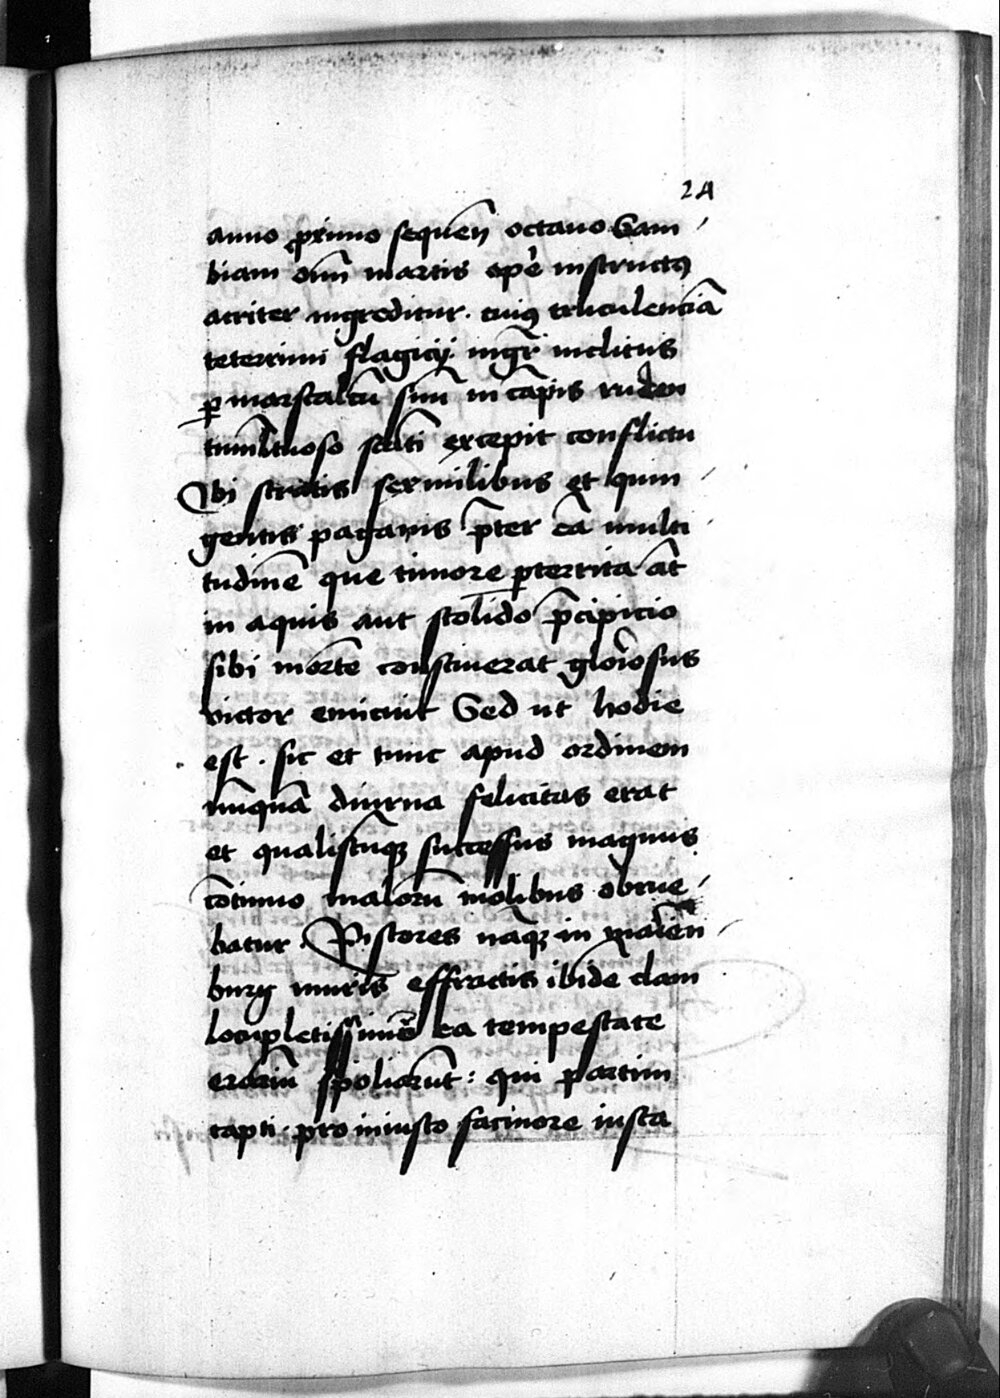 24
anno primo sequeñ octauo Sam
biam oīm martis ope instructꝰ
acriter ingreditur. cuiꝰ truculenciā
teterrimi flagicij. mgr̄ inclitus
ꝑ marscalcū suū in cāpis ruden
tumltuoso scāti excepit conflictu
Vbi stratis sexmilibus et quin
gentis paganis p̄ter eā multi
tudinē que timore ꝑterrita āt
in aquis aut stolido p̄cipicio
sibi mortē consciuerat gloriosus
victor emicuit Sed ut hodie
est . sic et tunc apud ordinem
nūquā diurna felicitas erat
et qualiscūqꝫ successus magnus
cōtinuo malorū molibus obrue
batur . Pistores nāqꝫ in marien
burg muris effractis ibidē clam
locupletissimū ea tempestate
erariū spoliarūt : qui partim
capti . pro iniusto facinore iusta